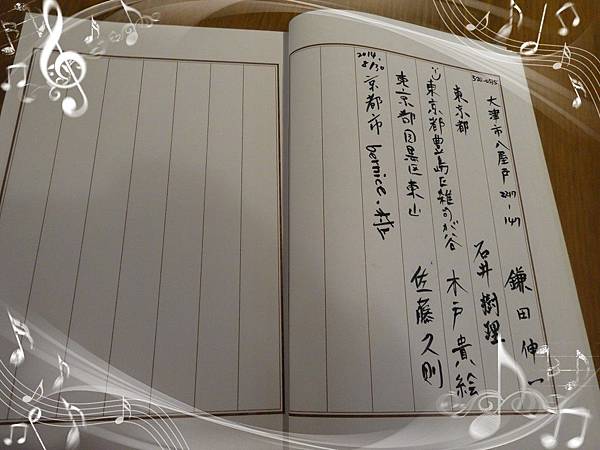 大津市八屋戸 2217-147 鎌田伸一
東京都 石井樹理
東京都豊島区雑司が谷 木戸貴絵
東京都目黒区東山 佐藤久則
2014.
8/30
京都市 bernice.